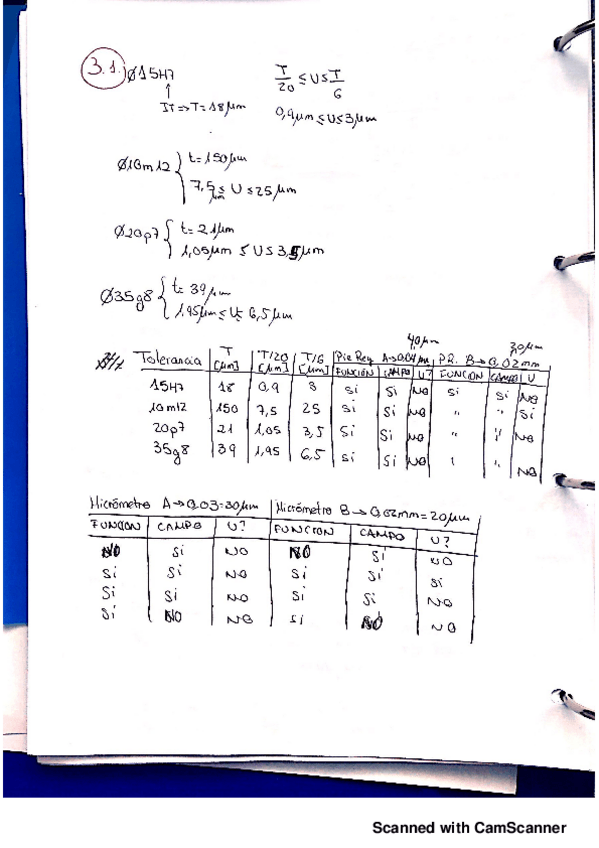 3.1. Ø15H7
IT => T = 18 µm
T/20 ≤ U ≤ T/6
0,9 µm ≤ U ≤ 3 µm
Ø10m12 { t = 150 µm
7,5 µm ≤ U ≤ 25 µm
Ø20p7 { t = 21 µm
1,05 µm ≤ U ≤ 3,5 µm
Ø35g8 { t = 39 µm
1,95 µm ≤ U ≤ 6,5 µm
40 µm 20 µm
Tolerancia T [µm] T/20 [µm] T/6 [µm] Pie Rey A → 0,04 mm P.R. B → 0,02 mm
FUNCIÓN CAMPO U? FUNCION CAMPO U
15H7 18 0,9 3 Si Si NO Si Si NO
10m12 150 7,5 25 Si Si NO " " Si
20p7 21 1,05 3,5 Si Si NO " " NO
35g8 39 1,95 6,5 Si Si NO " " NO
Micrómetro A → 0.03 = 30 µm Micrómetro B → 0,02 mm = 20 µm
FUNCION CAMPO U? FUNCION CAMPO U?
NO Si NO NO Si NO
Si Si NO Si Si Si
Si Si NO Si Si NO
Si NO NO Si NO NO
Scanned with CamScanner